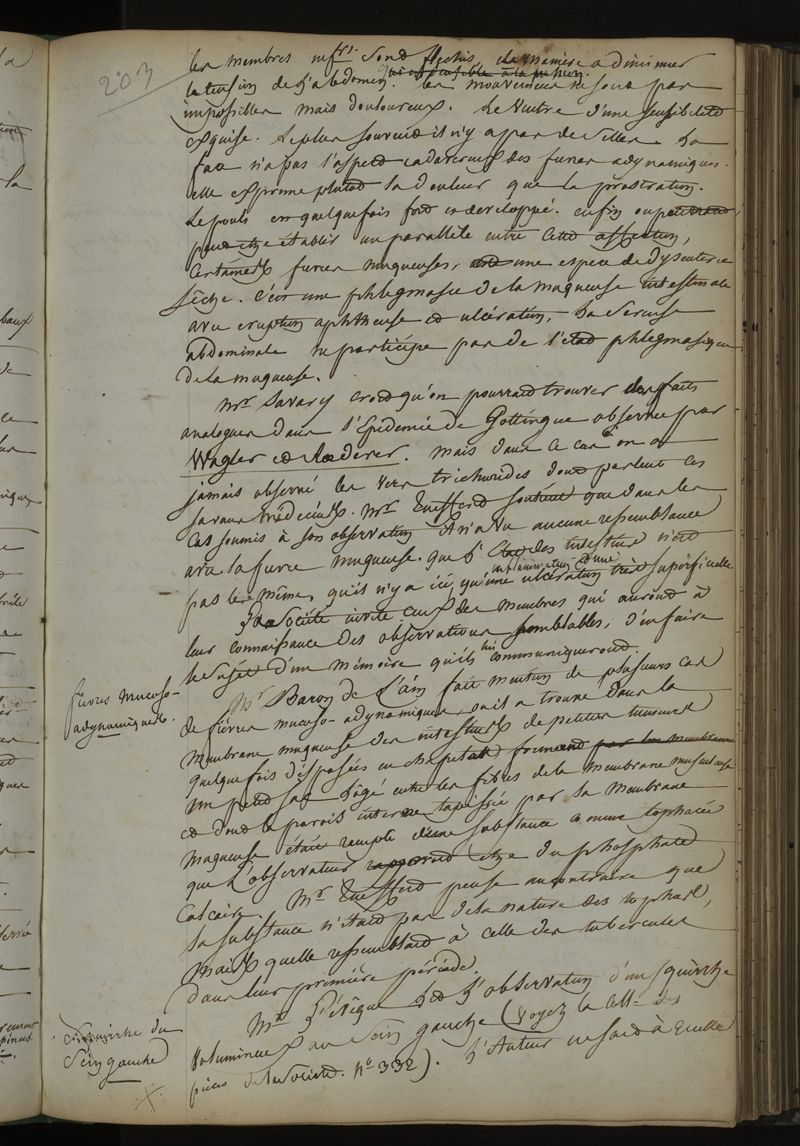 203
les membres inf.rs sont flechis de maniere a diminuer
la tension de l'abdomen. les mouvemens ne sont pas
impossibles mais douloureux. Le Ventre d'une sensibilité
exquise. Le plus souvent il n'y a pas de selles. La
face n'a pas l'aspect cadavereux des fievres adynamiques.
elle exprime plutot la douleur que la prostration.
Le pouls est quelquefois fort et developpé. enfin on
peut etre établir un parallele entre cette affection,
certaines fievres muqueuses, et une espece de dysenterie
sêche. C'est une phlegmasie de la muqueuse intestinale
avec eruption aphtheuse et ulcération. La sereuse
abdominale ne participe pas de l'etat phlegmasique
de la muqueuse.
Mr. Savary croit qu'on pourrait trouver des faits
analogues dans l'Epidemie de Gottingue observée par
Wagler et Rœderer. mais dans ce cas on a
jamais observé les vers trichurides dont parlent ces
savans médecins. Mr. soutient que dans les
cas soumis à son observation il n'a vu aucune ressemblance
avec la fievre muqueuse. que l'état des intestins n'est
pas le même, qu'il n'y a ici qu'une inflammation et une ulcération très superficielle.
La Société invite ceux des membres qui auront à
leur connaissance des observations semblables, d'en faire
le sujet d'un mémoire qu'ils lui communiqueront.
fievres muco-
adynamiques.
Mr. Baron de L'ain fait mention de plusieurs cas
de fièvres mucoso-adynamiques, où il a trouvé dans la
membrane muqueuse des intestins de petites tumeurs
quelquefois disposées en chapelet formant par les membranes
un petit sac logé entre les fibres de la membrane musculeuse
et dont la parois interne tapissée par la membrane
muqueuse était remplie d'une substance comme tophacée
que l'observateur etre du phosphate
calcaire. Mr. pense au contraire que
la substance n'était pas de la nature des tophus,
mais quelle ressemblait à celle des tubercules
dans leur première période.
squirrhe du
Sein gauche
Mr. lit l'observation d'un squirrhe
volumineux au sein gauche (voyez la coll. des
pièces de la Société. n° 332). L'Auteur